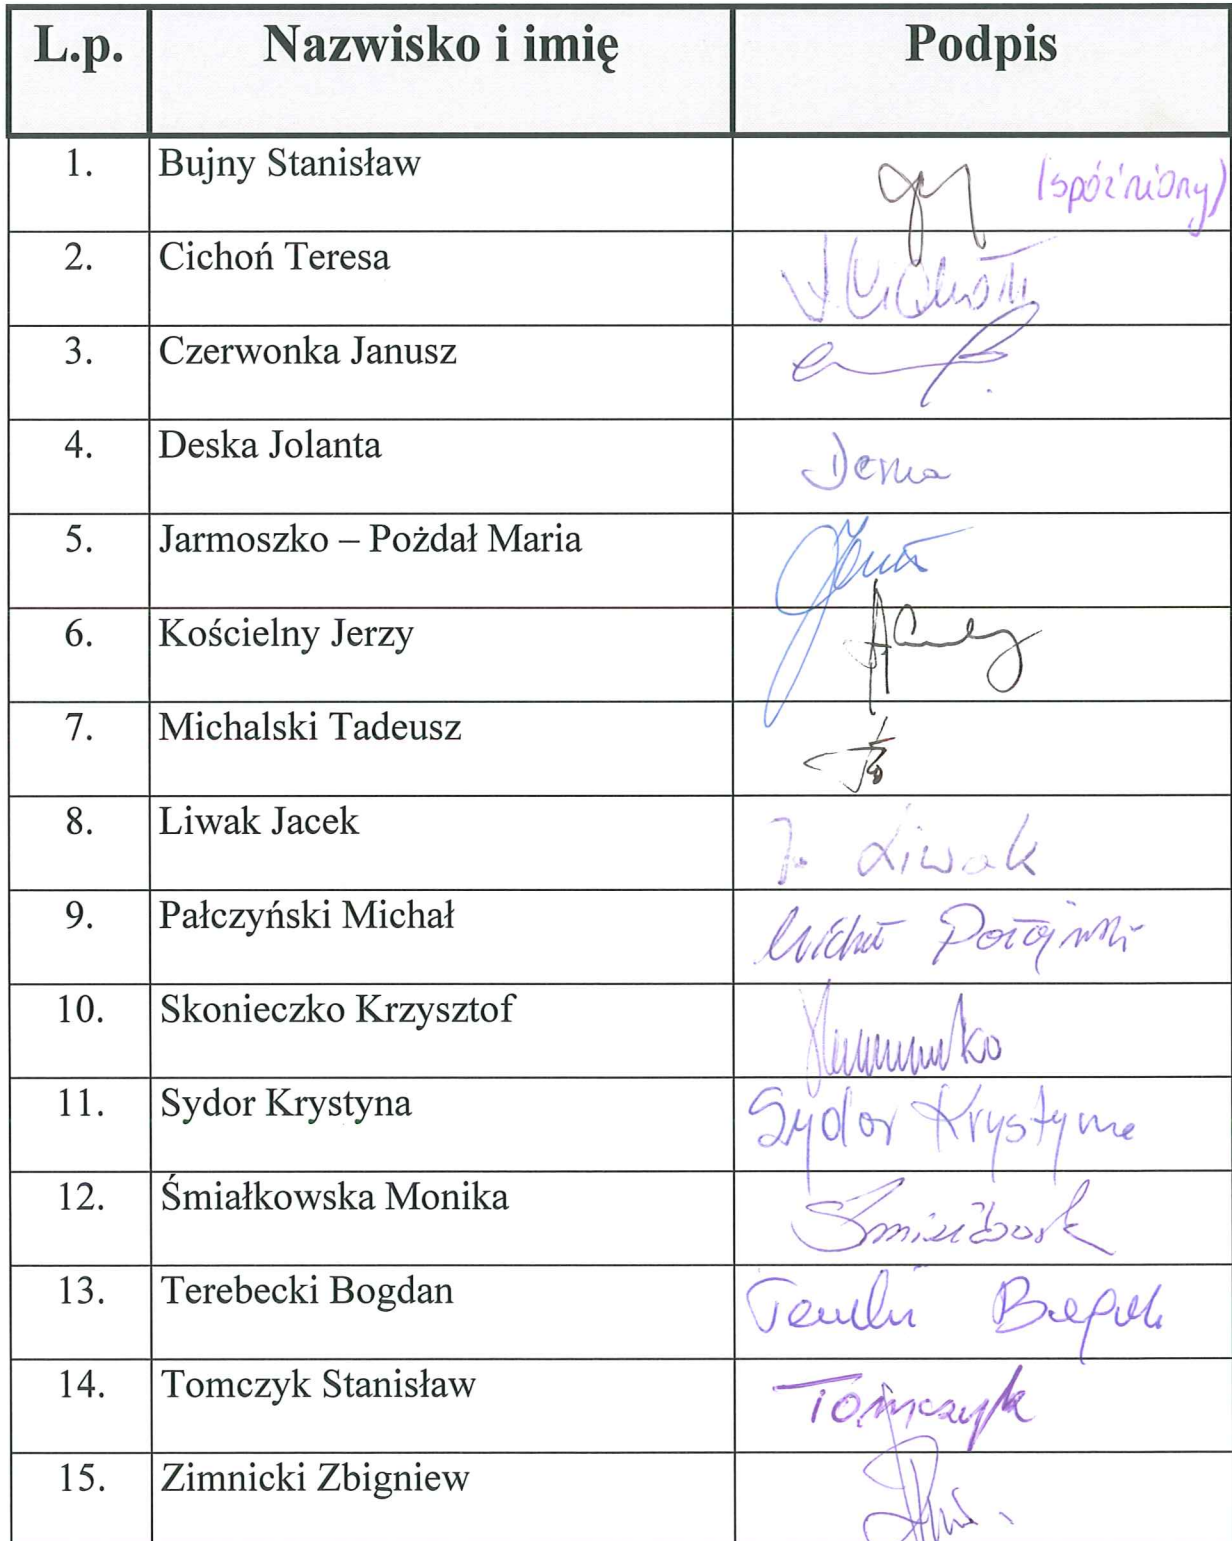 L.p. Nazwisko i imię Podpis
1. Bujny Stanisław (spóźniony)
2. Cichoń Teresa
3. Czerwonka Janusz
4. Deska Jolanta
5. Jarmoszko – Pożdał Maria
6. Kościelny Jerzy
7. Michalski Tadeusz
8. Liwak Jacek J. Liwak
9. Pałczyński Michał
10. Skonieczko Krzysztof
11. Sydor Krystyna Sydor Krystyna
12. Śmiałkowska Monika
13. Terebecki Bogdan
14. Tomczyk Stanisław Tomczyk
15. Zimnicki Zbigniew